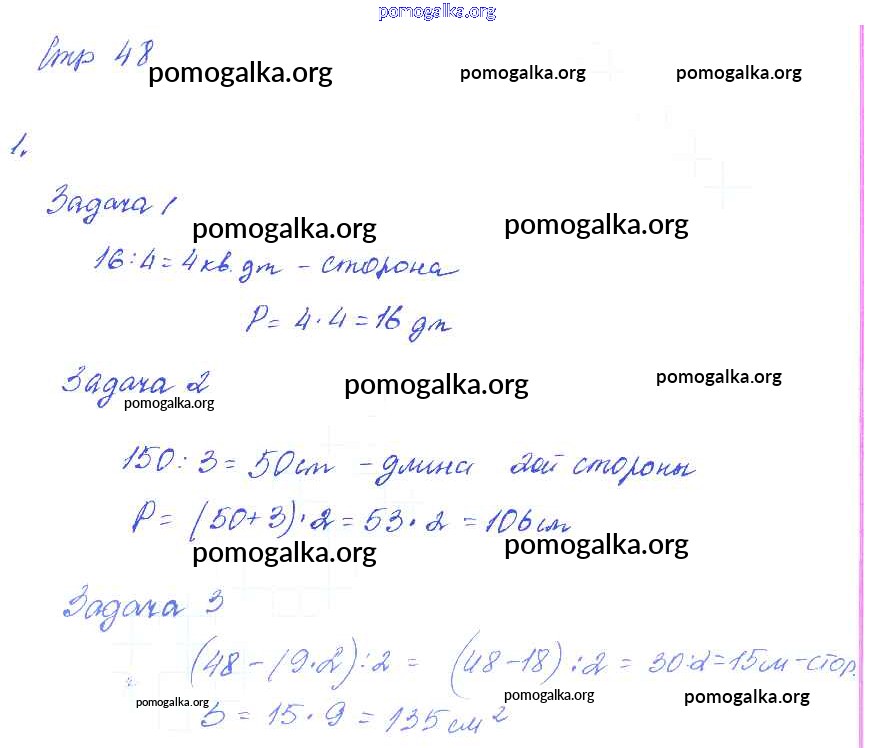 pomogalka.org
Стр 48
pomogalka.org pomogalka.org pomogalka.org
1.
Задача 1
pomogalka.org pomogalka.org
16:4=4кв.дм - сторона
P= 4·4=16 дм
Задача 2
pomogalka.org pomogalka.org
pomogalka.org
150:3=50см - длина 2ой стороны
P= (50+3)·2=53·2=106см
pomogalka.org pomogalka.org
Задача 3
(48-(9·2):2= (48-18):2=30:2=15см-стор.
pomogalka.org pomogalka.org pomogalka.org
S=15·9=135см²